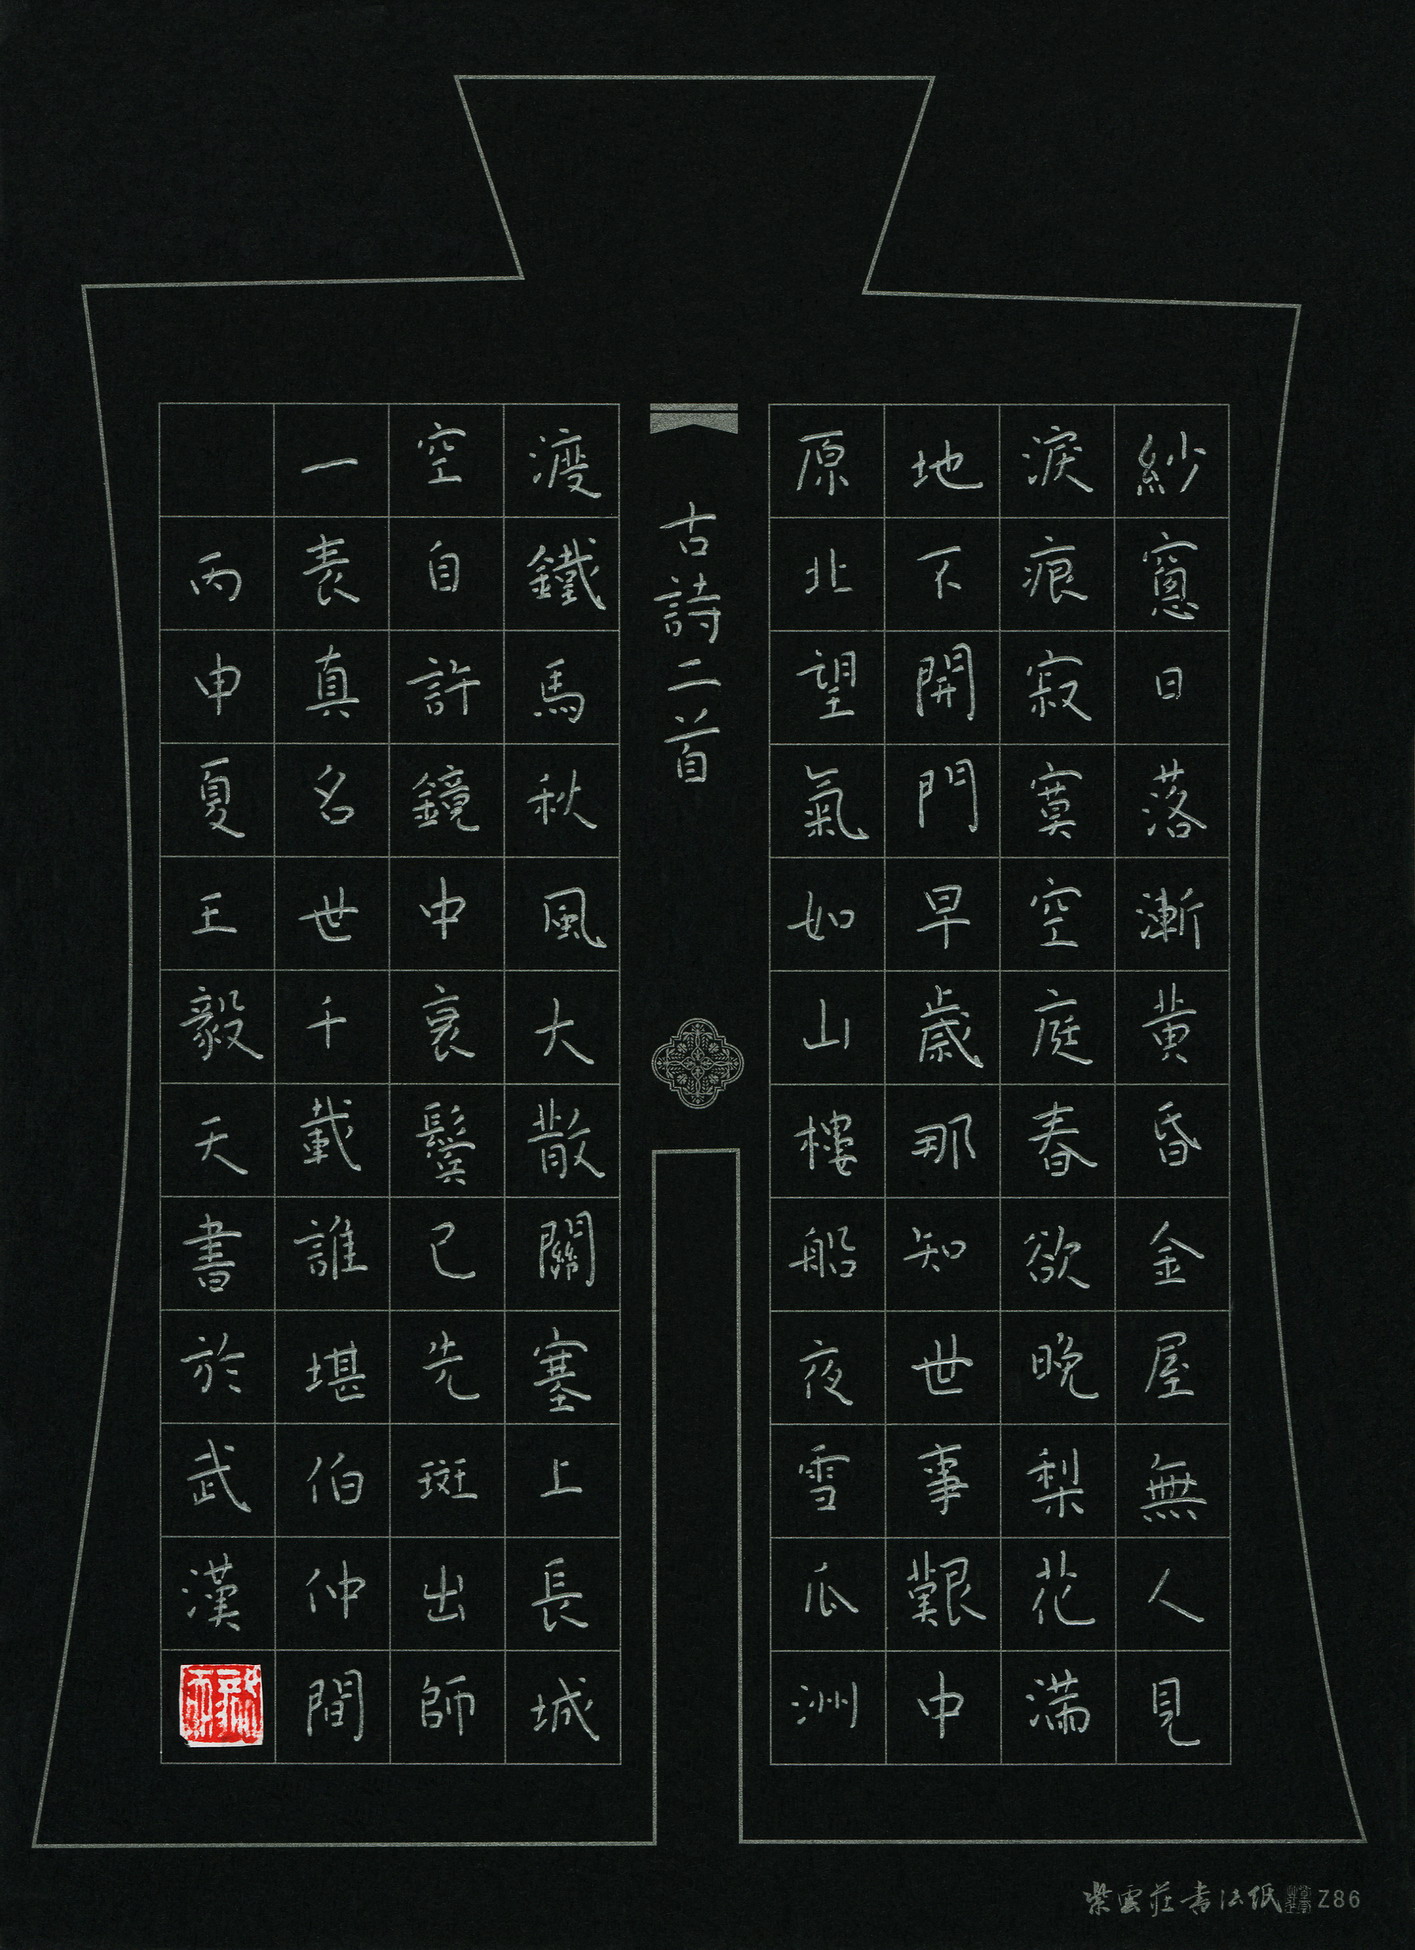 古詩二首
紗窻日落漸黃昏金屋無人見
淚痕寂寞空庭春欲晚梨花滿
地不開門早歲那知世事艱中
原北望氣如山樓船夜雪瓜洲
渡鐵馬秋風大散關塞上長城
空自許鏡中衰鬢已先斑出師
一表真名世千載誰堪伯仲間
丙申夏王毅天書於武漢
紫雲莊书法纸 Z86